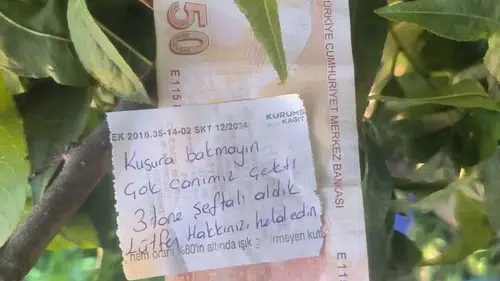 50
E115
TÜRKİYE CUMHURİYET MERKEZ BANKASI
KURUMS
KAĞIT
EK 2016.35-14-02 SKT 12/2034
Kusura bakmayın
Çok canımız çekti
3 tane şeftali aldık
Lütfen Hakkınızı helal edin
nem oranı %80'in altında ışık
E11